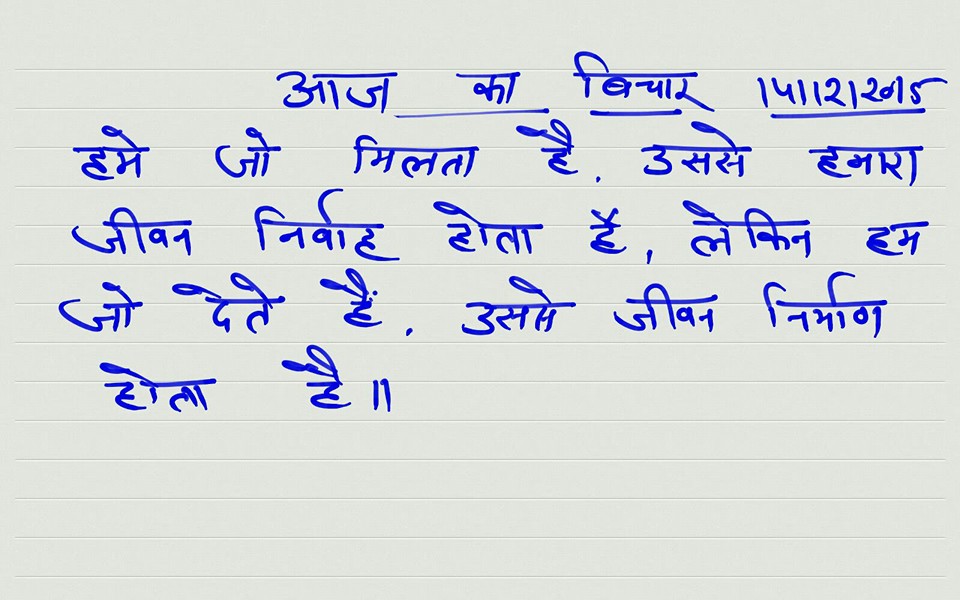 आज का बिचार 14|12|2015
हमे जो मिलता है, उससे हमारा
जीवन निर्वाह होता है, लेकिन हम
जो देते हैं, उससे जीवन निर्माण
होता है॥